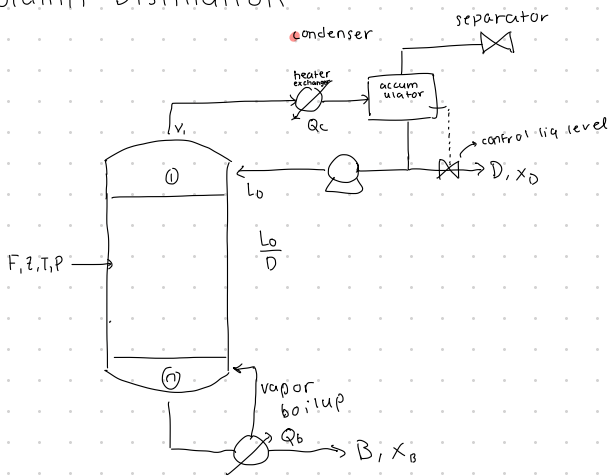 Column Distillation
separator
condenser
heater
exchanger
accum
ulator
Qc
V₁
control liq level
①
L₀
D, x_D
L₀
D
F, z, T, P
ⓝ
vapor
boilup
Q_b
B, x_B